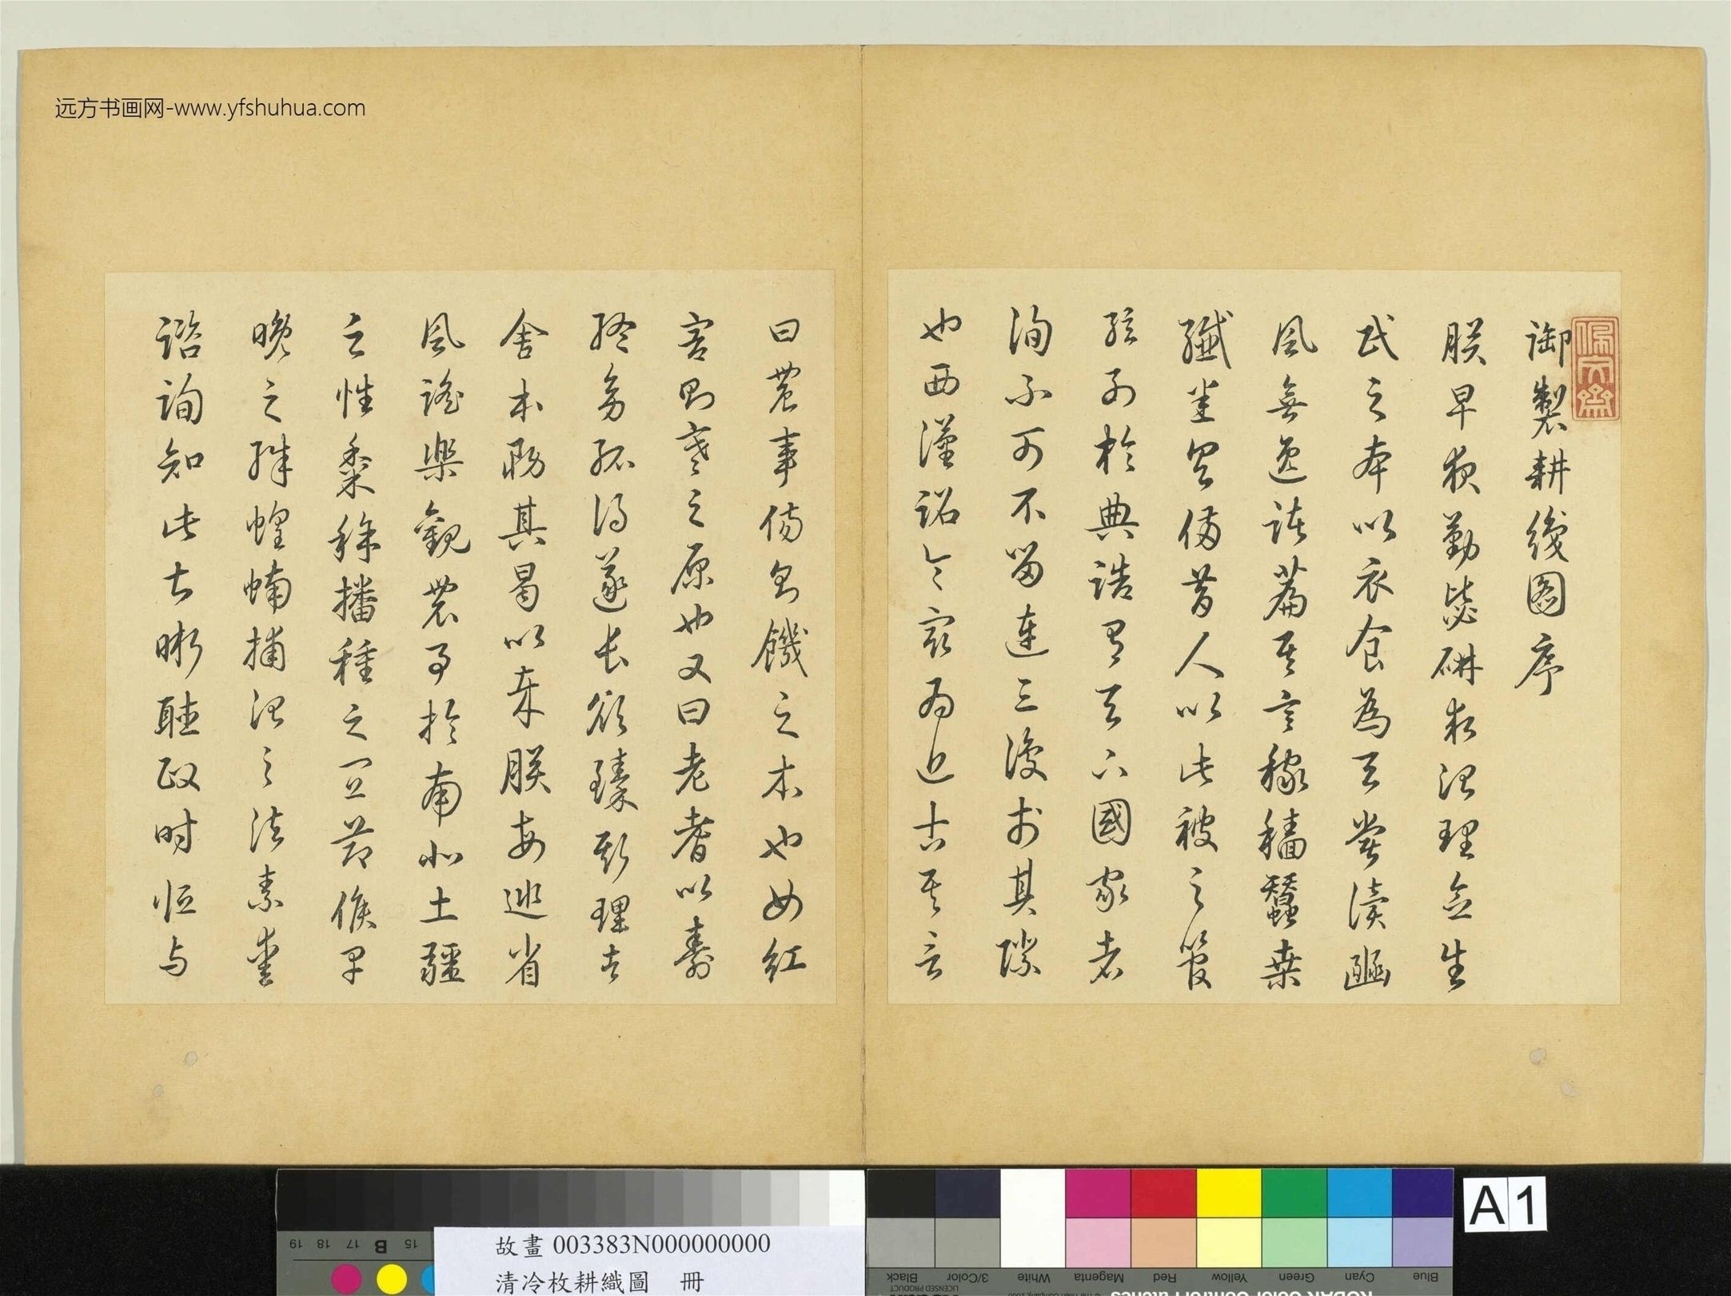 远方书画网-www.yfshuhua.com
佩文齋
御製耕織圖序
朕早夜勤毖研求治理念生
民之本以衣食為天嘗讀豳
風無逸諸篇其言稼穡蠶桑
纖悉具備昔人以此被之管
絃列於典誥有天下國家者
洵不可不留連三復於其際
也西漢詔令最為近古其言
曰農事傷則饑之本也女紅
害則寒之原也又曰老耆以壽
終幼孤得遂長欲臻斯理者
舍本務其曷以哉朕每巡省
風謠樂觀農事於南北土疆
之性黍稌播種之宜節候早
晚之殊蝗蝻捕治之法素愛
諮詢知此甚晰聽政時恒与
A1
19 18 17 B 15
故畫 003383N000000000
清冷枚耕織圖 冊
Blue Cyan Green Yellow Red Magenta White 3/Color Black